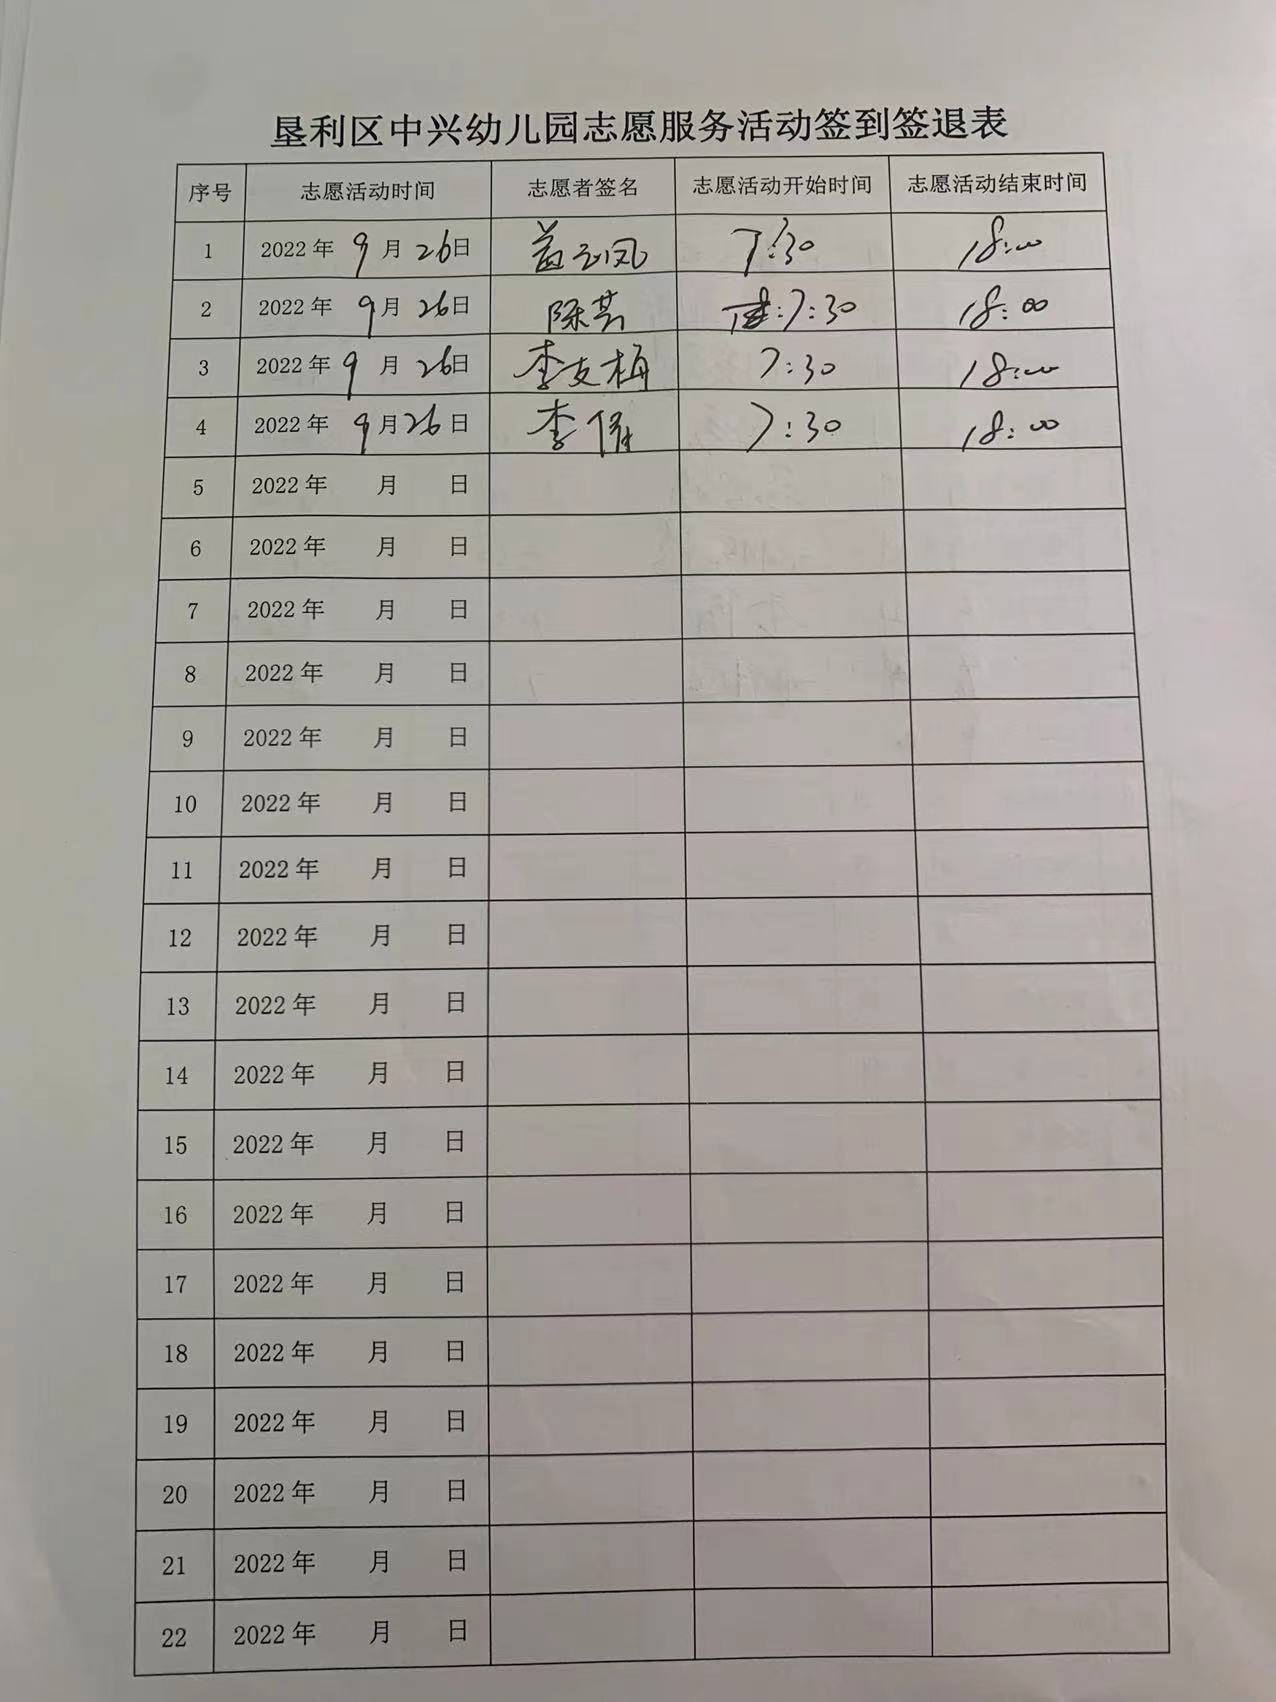 垦利区中兴幼儿园志愿服务活动签到签退表
序号 志愿活动时间 志愿者签名 志愿活动开始时间 志愿活动结束时间
1 2022年 9月 26日 7:30 18:00
2 2022年 9月 26日 陈芸 7:30 18:00
3 2022年 9月 26日 李友梅 7:30 18:00
4 2022年 9月 26日 李 7:30 18:00
5 2022年 月 日
6 2022年 月 日
7 2022年 月 日
8 2022年 月 日
9 2022年 月 日
10 2022年 月 日
11 2022年 月 日
12 2022年 月 日
13 2022年 月 日
14 2022年 月 日
15 2022年 月 日
16 2022年 月 日
17 2022年 月 日
18 2022年 月 日
19 2022年 月 日
20 2022年 月 日
21 2022年 月 日
22 2022年 月 日